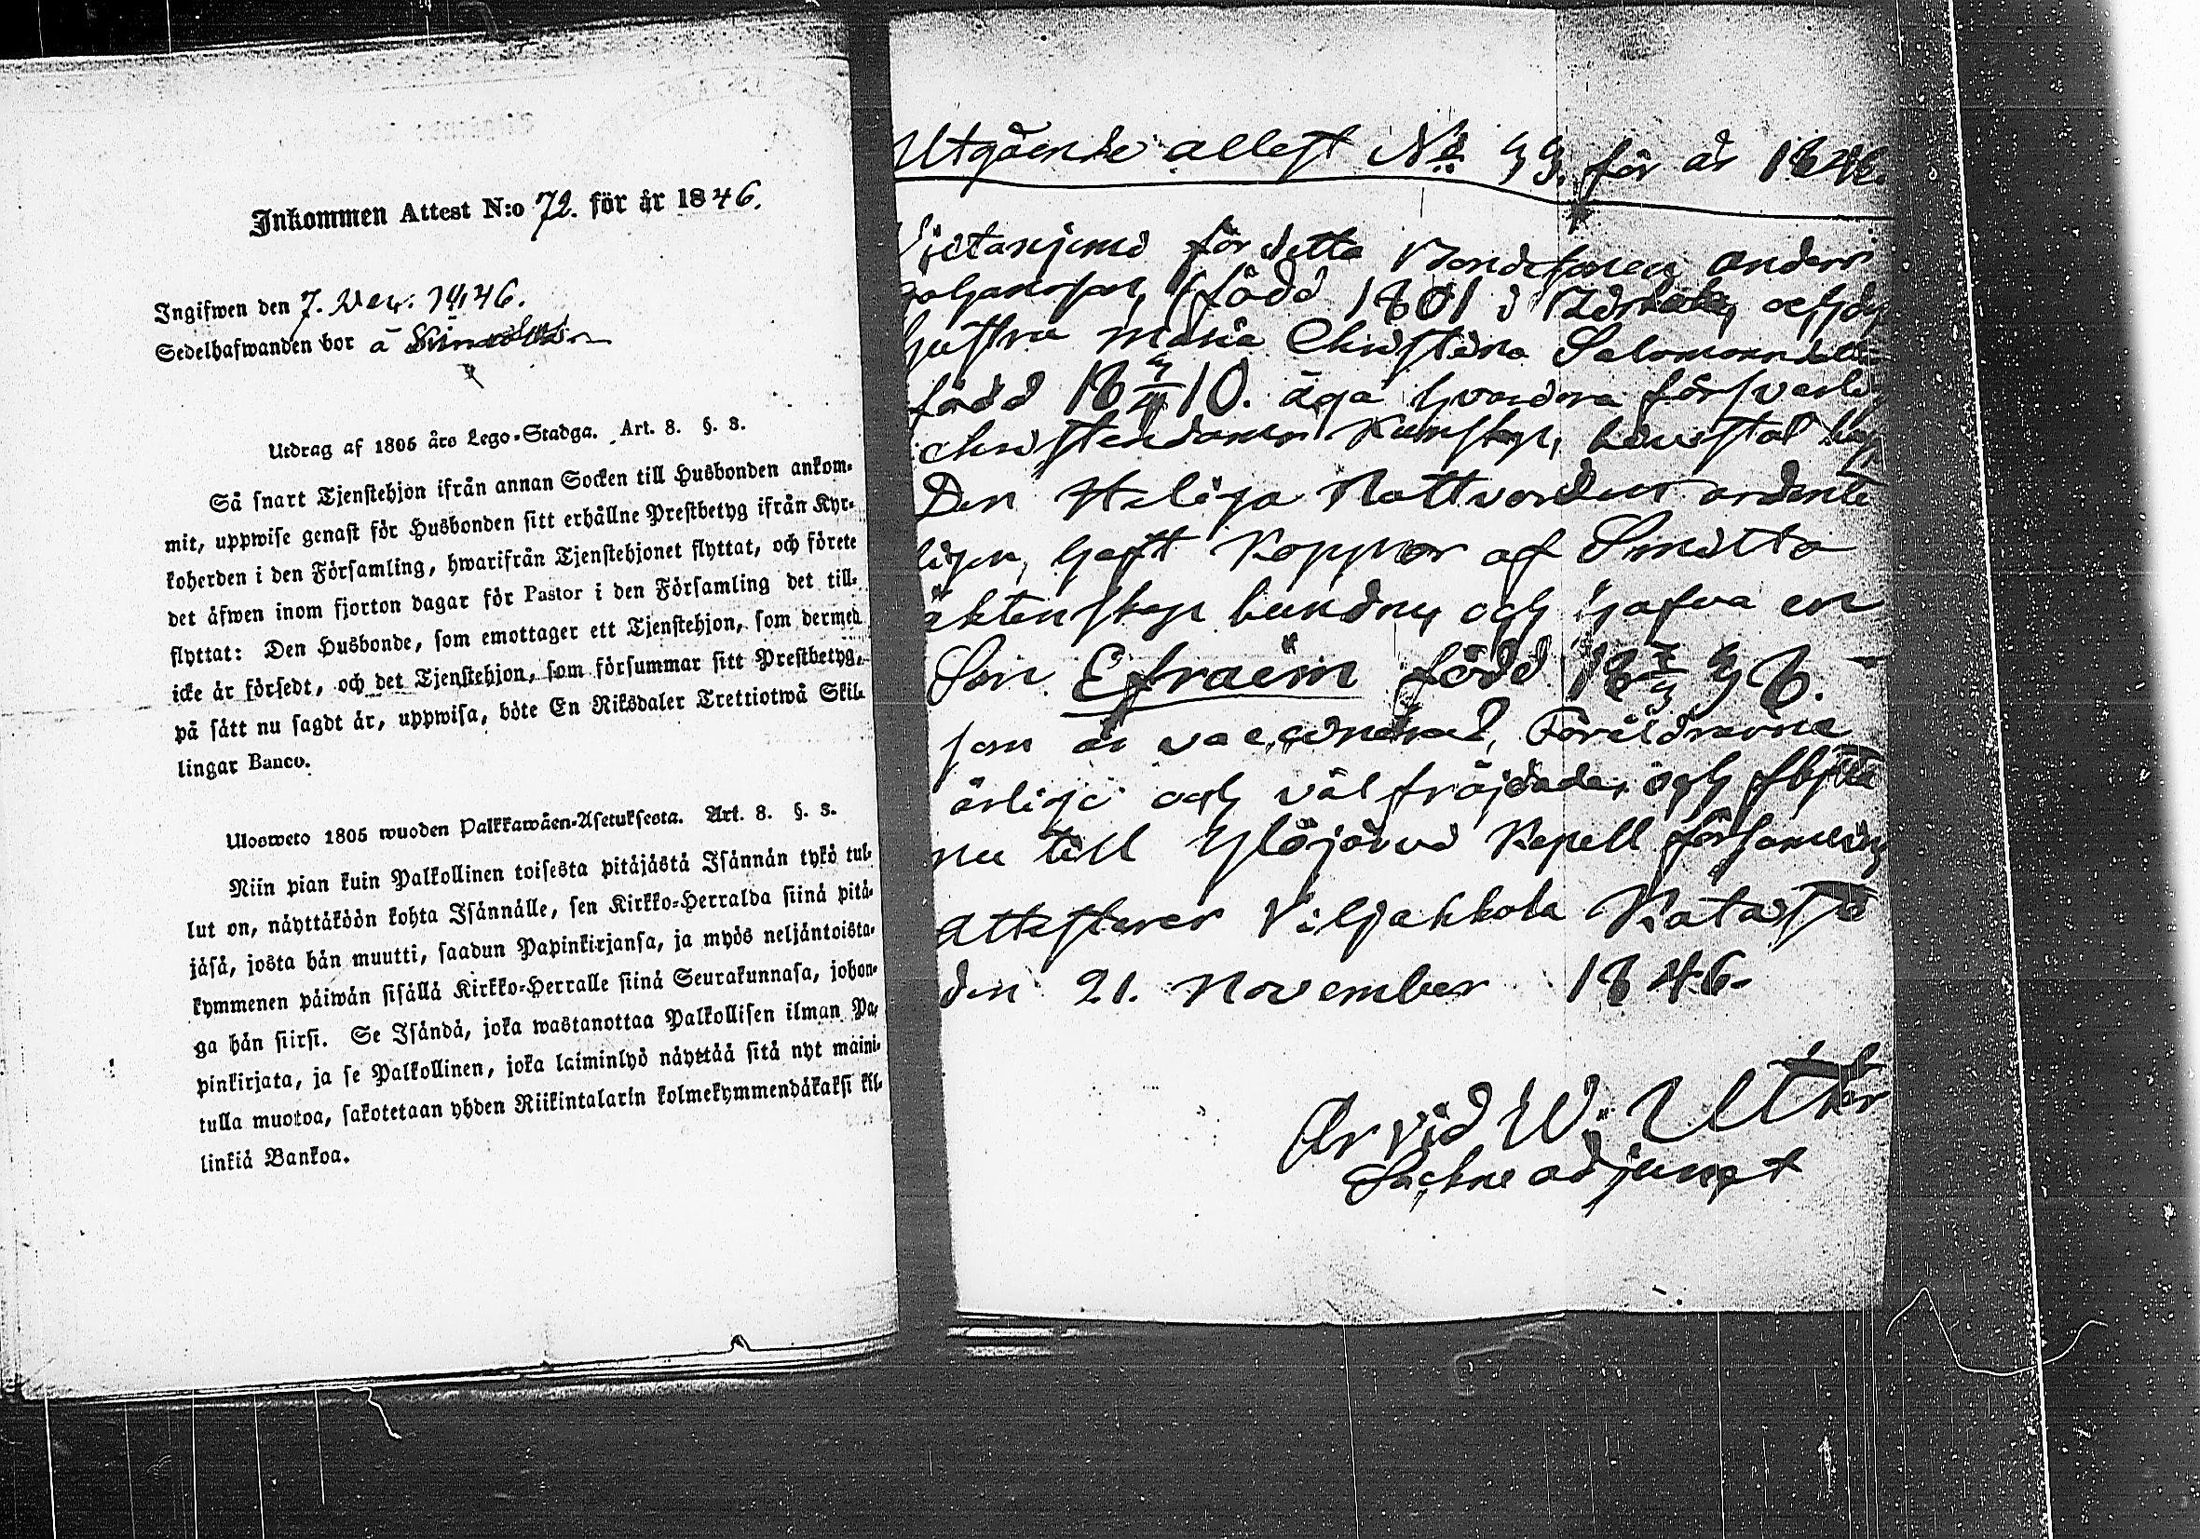 Inkommen Attest N:o 72. för år 1846.
Ingifwen den 7. 1846.
Sedelhafwanden bor å
Utdrag af 1805 års Lego-Stadga. Art. 8. §. 3.
Så snart Tjenstehjon ifrån annan Socken till Husbonden ankom-
mit, uppwise genast för Husbonden sitt erhållne Prestbetyg ifrån Kyr-
koherden i den Församling, hwarifrån Tjenstehjonet flyttat, och förete
det äfwen inom fjorton dagar för Pastor i den Församling det till-
flyttat: Den Husbonde, som emottager ett Tjenstehjon, som dermed
icke är försedt, och det Tjenstehjon, som försummar sitt Prestbetyg,
på sätt nu sagdt är, uppwisa, böte En Riksdaler Trettiotwå Skil-
lingar Banco.
Ulosweto 1805 wuoden Palkkawäen-Asetuksesta. Art. 8. §. 3.
Niin pian kuin Palkollinen toisesta pitäjästä Isännän tykö tul-
lut on, näyttäköön kohta Isännälle, sen Kirkko-Herralda siinä pitä-
jäsä, josta hän muutti, saadun Papinkirjansa, ja myös neljäntoista-
kymmenen päiwän sisällä Kirkko-Herralle siinä Seurakunnasa, johon-
ga hän siirsi. Se Isändä, joka wastanottaa Palkollisen ilman Pa-
pinkirjata, ja se Palkollinen, joka laiminlyö näyttää sitä nyt maini-
tulla muotoa, sakotetaan yhden Riikintalarin kolmekymmendäkaksi kil-
linkiä Bankoa.
Utgående attest No 93. för år 1846.
för detta Bondesonen Anders
född 1801 i och dess
hustru Maria Christina Salomonsdotter
född 18 10. äga hvardera försvarlig
christendoms kunskap, bevistat
Den Heliga Nattvarden ordent
ligen, haft Koppor af Smitta
äktenskap bundna och hafva en
Son Efraim född 18
som är vaccinerad, Föräldrarna
ärliga och väl fräjdade, och flytta
nu till Ylöjärvi Kapell församling
attesterar Viljakkala Kataisto
den 21. November 1846.
Arvid W. Uthr
Sockne adjunct